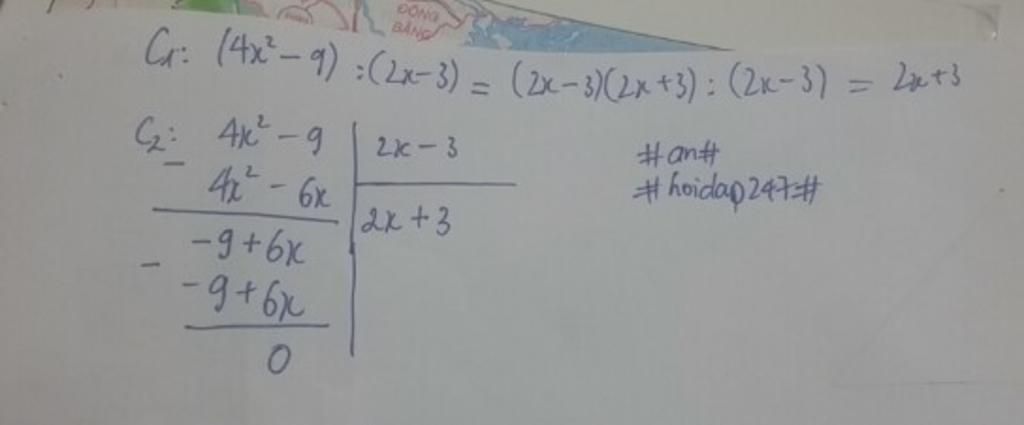 ĐỒNG
BẰNG
C₁: (4x² - 9) : (2x - 3) = (2x - 3)(2x + 3) : (2x - 3) = 2x + 3
C₂: 4x² - 9 | 2x - 3
- 4x² - 6x | 2x + 3
-9 + 6x
- -9 + 6x
0
#an#
#hoidap247#